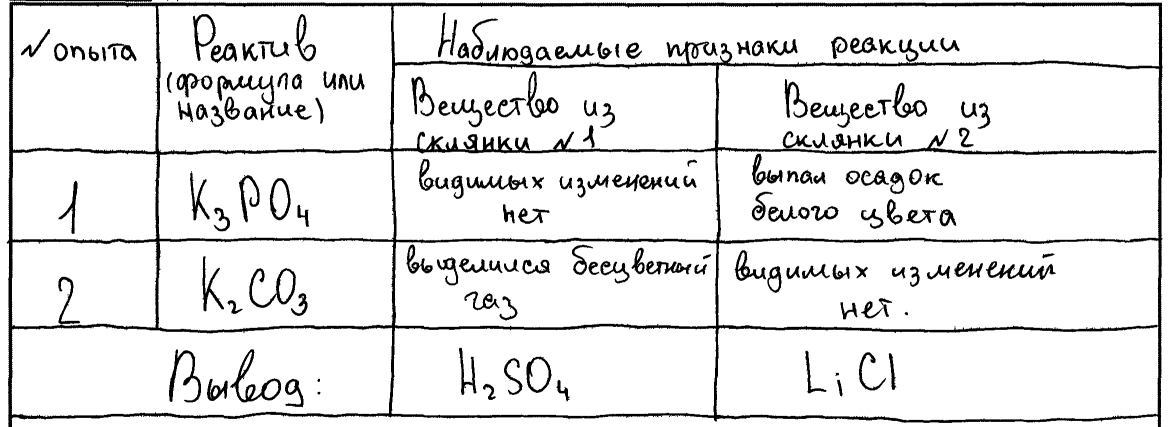 № опыта
Реактив
(формула или
название)
Наблюдаемые признаки реакции
Вещество из
склянки №1
Вещество из
склянки №2
1
K₃PO₄
видимых изменений
нет
выпал осадок
белого цвета
2
K₂CO₃
выделился бесцветный
газ
видимых изменений
нет.
Вывод:
H₂SO₄
LiCl